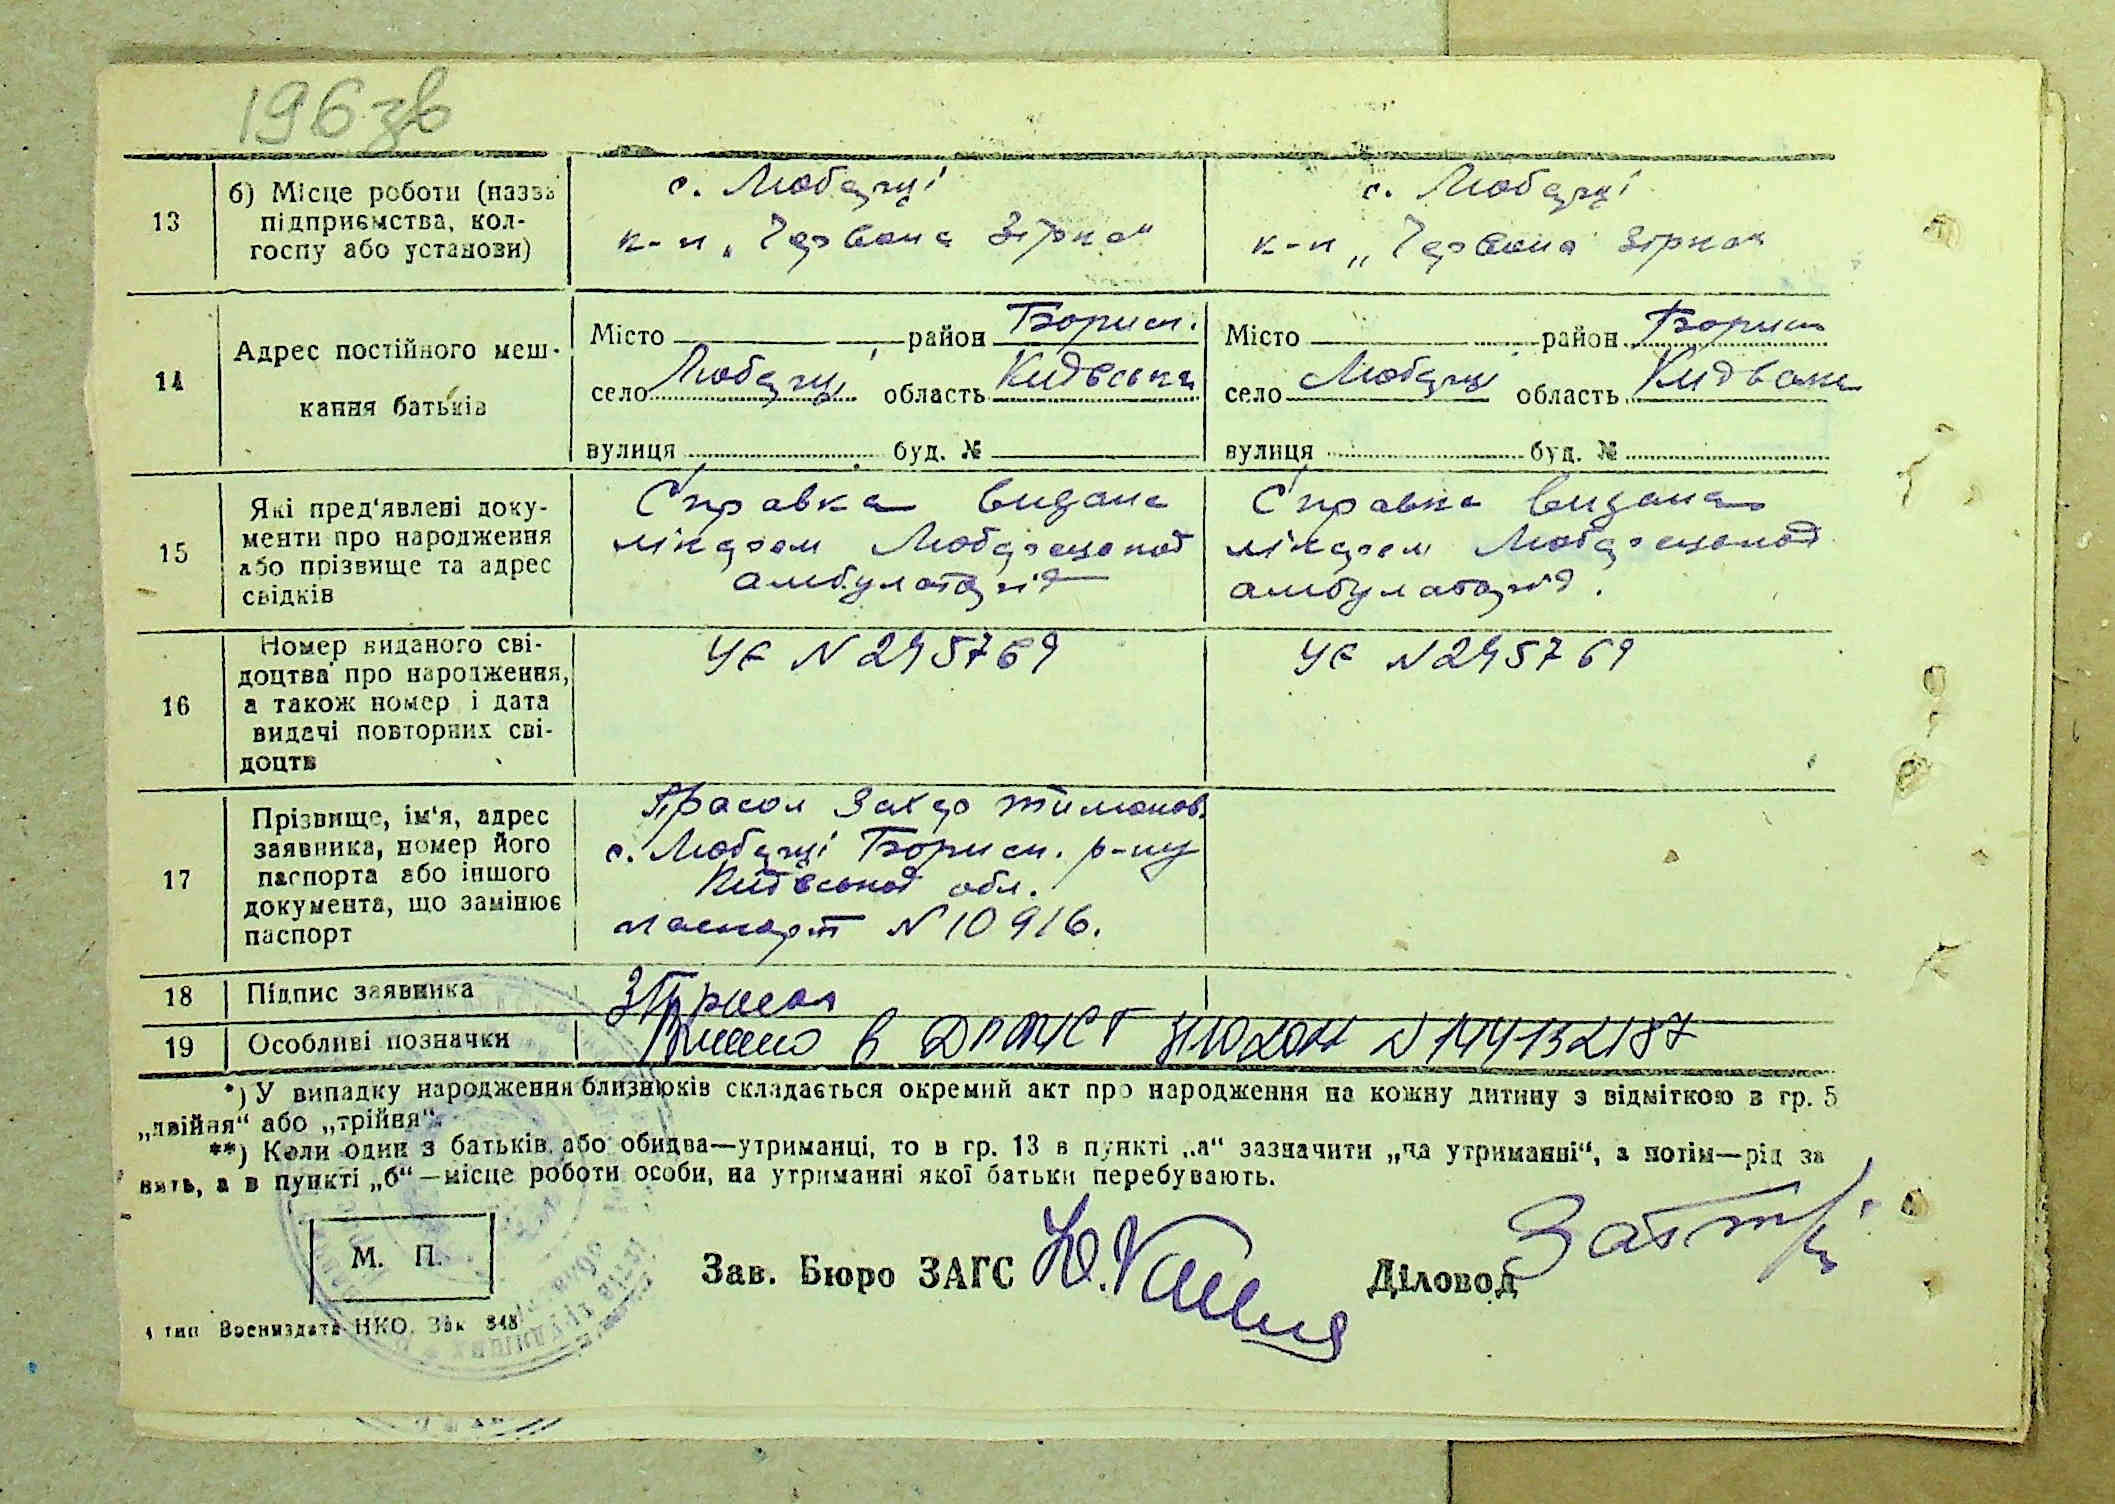 196 зв
13
б) Місце роботи (назва
підприємства, кол-
госпу або установи)
с. Любарці
к-п „Червона Зірка"
с. Любарці
к-п „Червона Зірка"
14
Адрес постійного меш-
кання батьків
Місто район Борисп.
село Любарці область Київська
вулиця буд. №
Місто район Борисп
село Любарці область Київська
вулиця буд. №
15
Які пред'явлені доку-
менти про народження
або прізвище та адрес
свідків
Справка видана
лікарем Любарецької
амбулаторії
Справка видана
лікарем Любарецької
амбулаторії.
16
Номер виданого сві-
доцтва про народження,
а також номер і дата
видачі повторних сві-
доцтв
УЄ N 245769
УЄ N 245769
17
Прізвище, ім'я, адрес
заявника, номер його
паспорта або іншого
документа, що замінює
паспорт
Прасол Захар Тимонов.
с. Любарці Борисп. р-ну
Київської обл.
паспорт N 10916.
18
Підпис заявника
ЗПрасол
19
Особливі позначки
в ДРАЦСГ N 144132187
*) У випадку народження близнюків складається окремий акт про народження на кожну дитину з відміткою в гр. 5
„двійня“ або „трійня“.
**) Коли один з батьків або обидва—утриманці, то в гр. 13 в пункті „а“ зазначити „на утриманні“, а потім—рід за
нять, а в пункті „б“—місце роботи особи, на утриманні якої батьки перебувають.
М. П.
Зав. Бюро ЗАГС
Діловод
4 тип Воениздата НКО. Зак 848